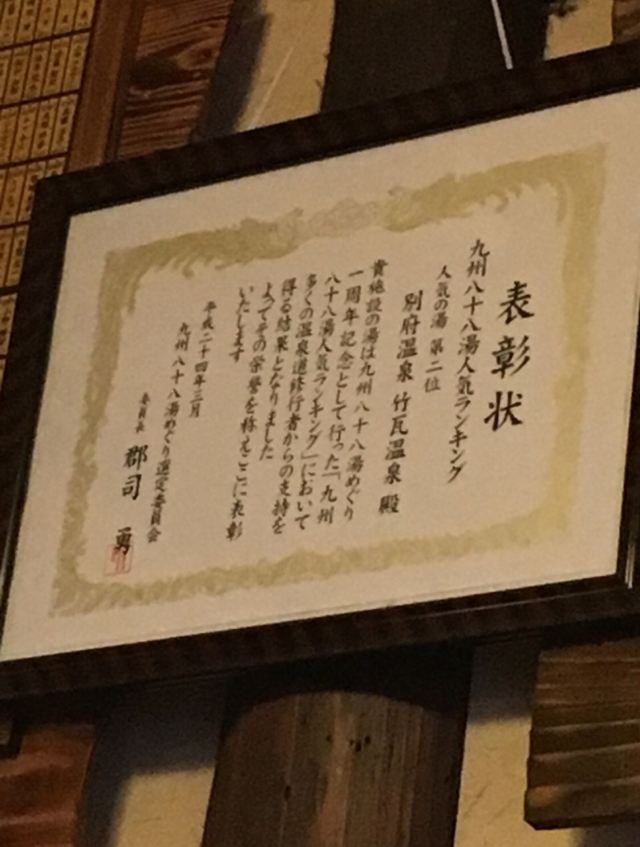 表彰状
九州八十八湯人気ランキング
人気の湯 第二位
別府温泉 竹瓦温泉 殿
貴施設の湯は九州八十八湯めぐり
一周年記念として行った「九州
八十八湯人気ランキング」において
多くの温泉道修行者からの支持を
得る結果となりました
よってその栄誉を称えここに表彰
いたします
平成二十四年三月
九州八十八湯めぐり選定委員会
委員長 郡司 勇